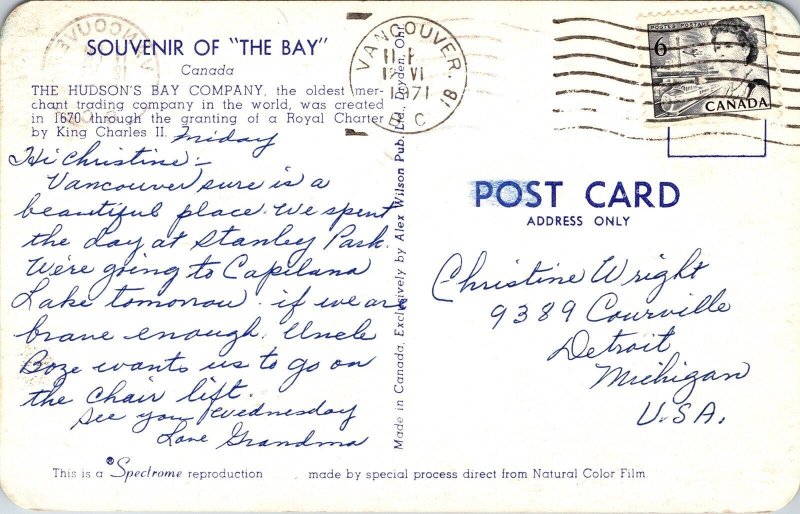 SOUVENIR OF "THE BAY"
Canada
THE HUDSON'S BAY COMPANY, the oldest mer-
chant trading company in the world, was created
in 1670 through the granting of a Royal Charter
by King Charles II.
Friday
Hi Christine –
Vancouver sure is a
beautiful place. We spent
the day at Stanley Park.
We're going to Capilana
Lake tomorrow. if we are
brave enough. Uncle
Boze wants us to go on
the chair lift.
See you Wednesday
Love Grandma
This is a Spectrome reproduction made by special process direct from Natural Color Film
Made in Canada, Exclusively by Alex Wilson Pub. Ltd., Dryden, Ont.
VANCOUVER.
VI
1971
B C
POSTES POSTAGE
6
CANADA
POST CARD
ADDRESS ONLY
Christine Wright
9389 Courville
Detroit
Michigan
U.S.A.